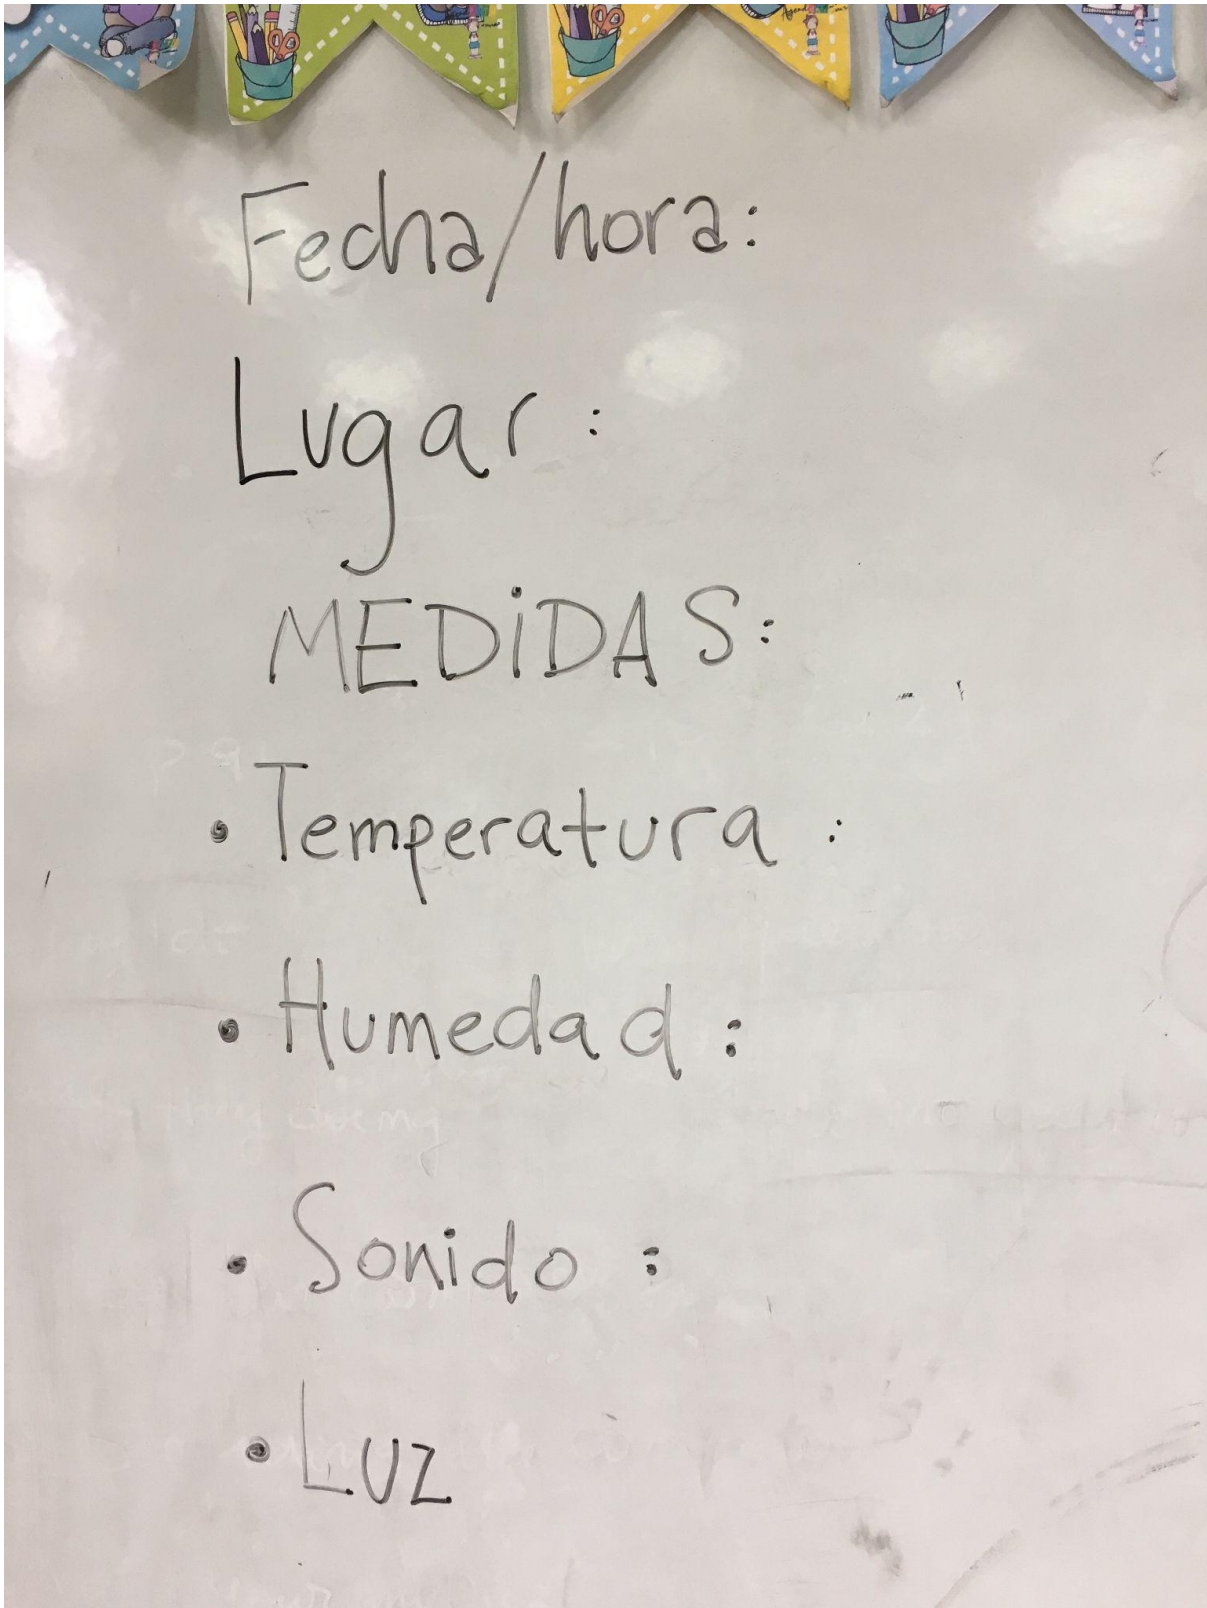 Fecha/hora:
Lugar:
MEDiDAS:
• Temperatura:
• Humedad:
• Sonido:
• Luz